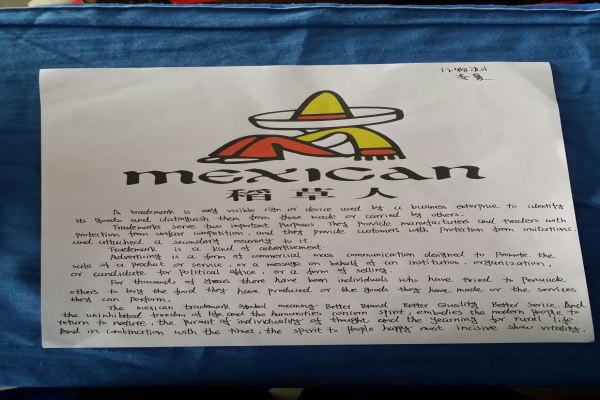 mexican
稻草人
A trademark is any visible sign or device used by a business enterprise to identify
its goods and distinguish them from those made or carried by others.
Trademarks serve two important purposes They provide manufacturers and traders with
protection from unfair competition, and they provide customers with protection from imitations.
and attached a secondary meaning to it.
Trademark is a kind of advertisement.
Advertising is a form of commercial mass communication designed to promote the
sale of a product or service, or a message on behalf of an institution, organization,
or candidate for political office, or a form of selling.
For thousands of years there have been individuals who have tried to persuade
others to buy the food they have produced or the goods they have made or the services
they can perform.
The mexican trademark symbol meaning Better Brand Better Quality Better Service. And
the uninhibited freedom of life and the humanities concern spirit, embodies the modern people to
return to nature, the pursuit of individuality of thought and the yearning for rural life
And in combination with the times, the spirit to people happy most incisive show vitality.